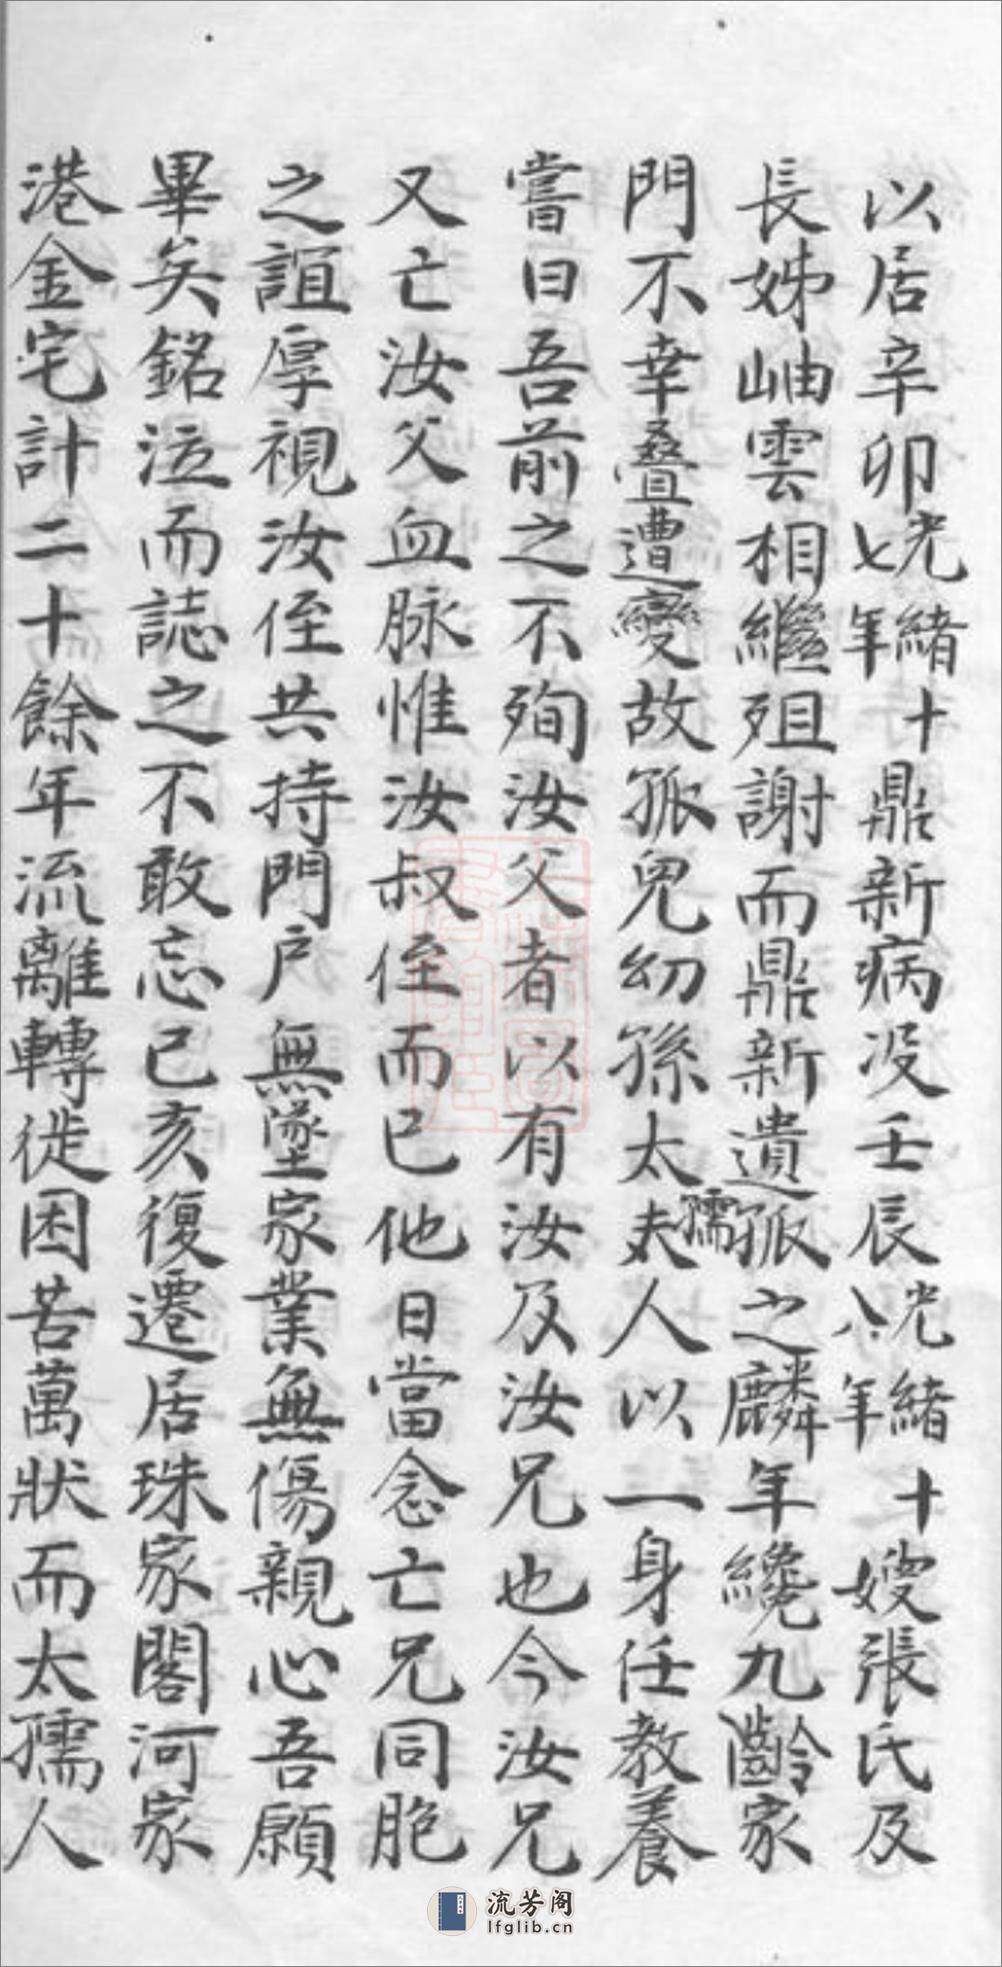 以居辛卯光緒十七年鼎新病没壬辰光緒十八年嫂張氏及
長姊岫雲相繼殂謝而鼎新遺孤之麟年纔九齡家
門不幸叠遭變故孤兒幼孫太孺人以一身任教養
嘗曰吾前之不殉汝父者以有汝及汝兄也今汝兄
又亡汝父血脉惟汝叔侄而已他日當念亡兄同胞
之誼厚視汝侄共持門户無墜家業無傷親心吾願
畢矣銘泣而誌之不敢忘己亥復遷居珠家閣河家
港金宅計二十餘年流離轉徙困苦萬狀而太孺人
流芳阁
lfglib.cn